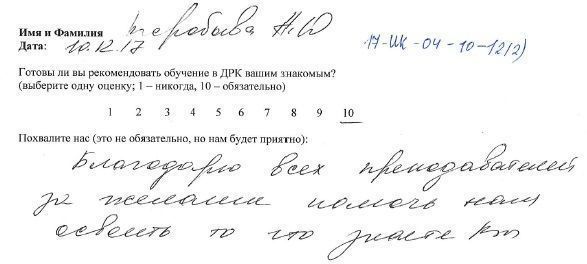 Имя и Фамилия Н.Ю
Дата: 10.12.17
17-ИК-04-10-12(2)
Готовы ли вы рекомендовать обучение в ДРК вашим знакомым?
(выберите одну оценку; 1 – никогда, 10 – обязательно)
1 2 3 4 5 6 7 8 9 10
Похвалите нас (это не обязательно, но нам будет приятно):
Благодарю всех преподавателей
за желание помочь нам
освоить то что знаете Вы